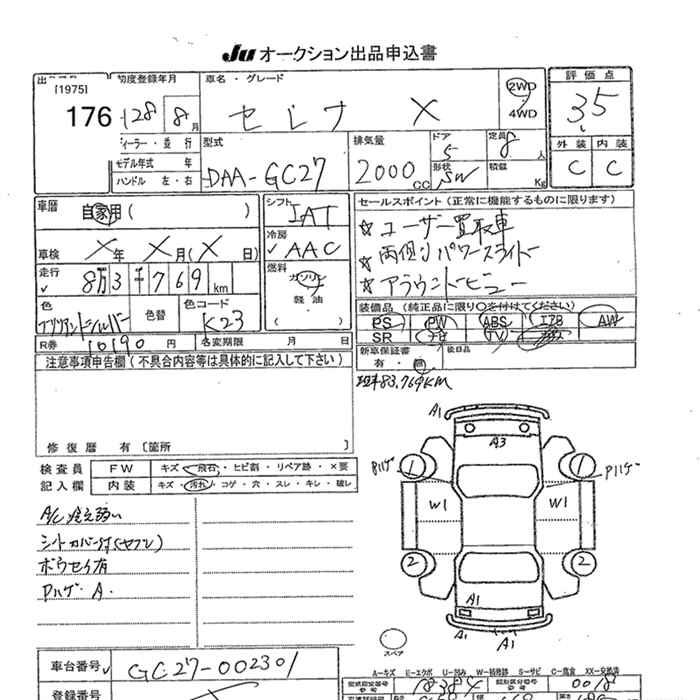 Ju オークション出品申込書
[1975]
176
初度登録年月
H28年 8月
車名・グレード
セレナ X
2WD
4WD
評価点
3.5
ディーラー・並行
モデル年式 年
ハンドル 左・右
型式
DAA-GC27
排気量
2000 CC
ドア
5
形状
SW
定員
8人
積載
Kg
外装 内装
C C
車歴
自家用 ( )
シフト
IAT
セールスポイント(正常に機能するものに限ります)
☆ ユーザー買取車
☆ 両側パワースライドー
☆ アラウンドビュー
車検 X年 X月(X日)
冷房
✓ AAC
走行
✓ 8万3千769km
燃料
ガソリン
軽油
( )
色
ブリリアントシルバー
色替
色コード
K23
装備品(純正品に限り○を付けてください)
PS PW ABS エアB AW
SR TV
R券 10190円
名変期限 月 日
新車保証書
有・無
後日品
注意事項申告欄(不具合内容等は具体的に記入して下さい)
83,769KM
修復歴 有〔箇所 〕
検査員
記入欄
FW キズ・飛石・ヒビ割・リペア跡・×要
内装 キズ・汚れ・コゲ・穴・スレ・キレ・破レ
A/C 冷え弱い
シートカバー付(ヤブレ)
ボウセイ有
Pハゲ A.
A1
A3
Pハゲ
1 1
W1 W1
2 2
A1 A1
A1
スペア
A-キズ E-エクボ U-凹み W-補修跡 S-サビ C-腐食 XX-交換済
車台番号 ✓ GC27-002301
登録番号
型式指定番号
18384
類別区分番号
0018